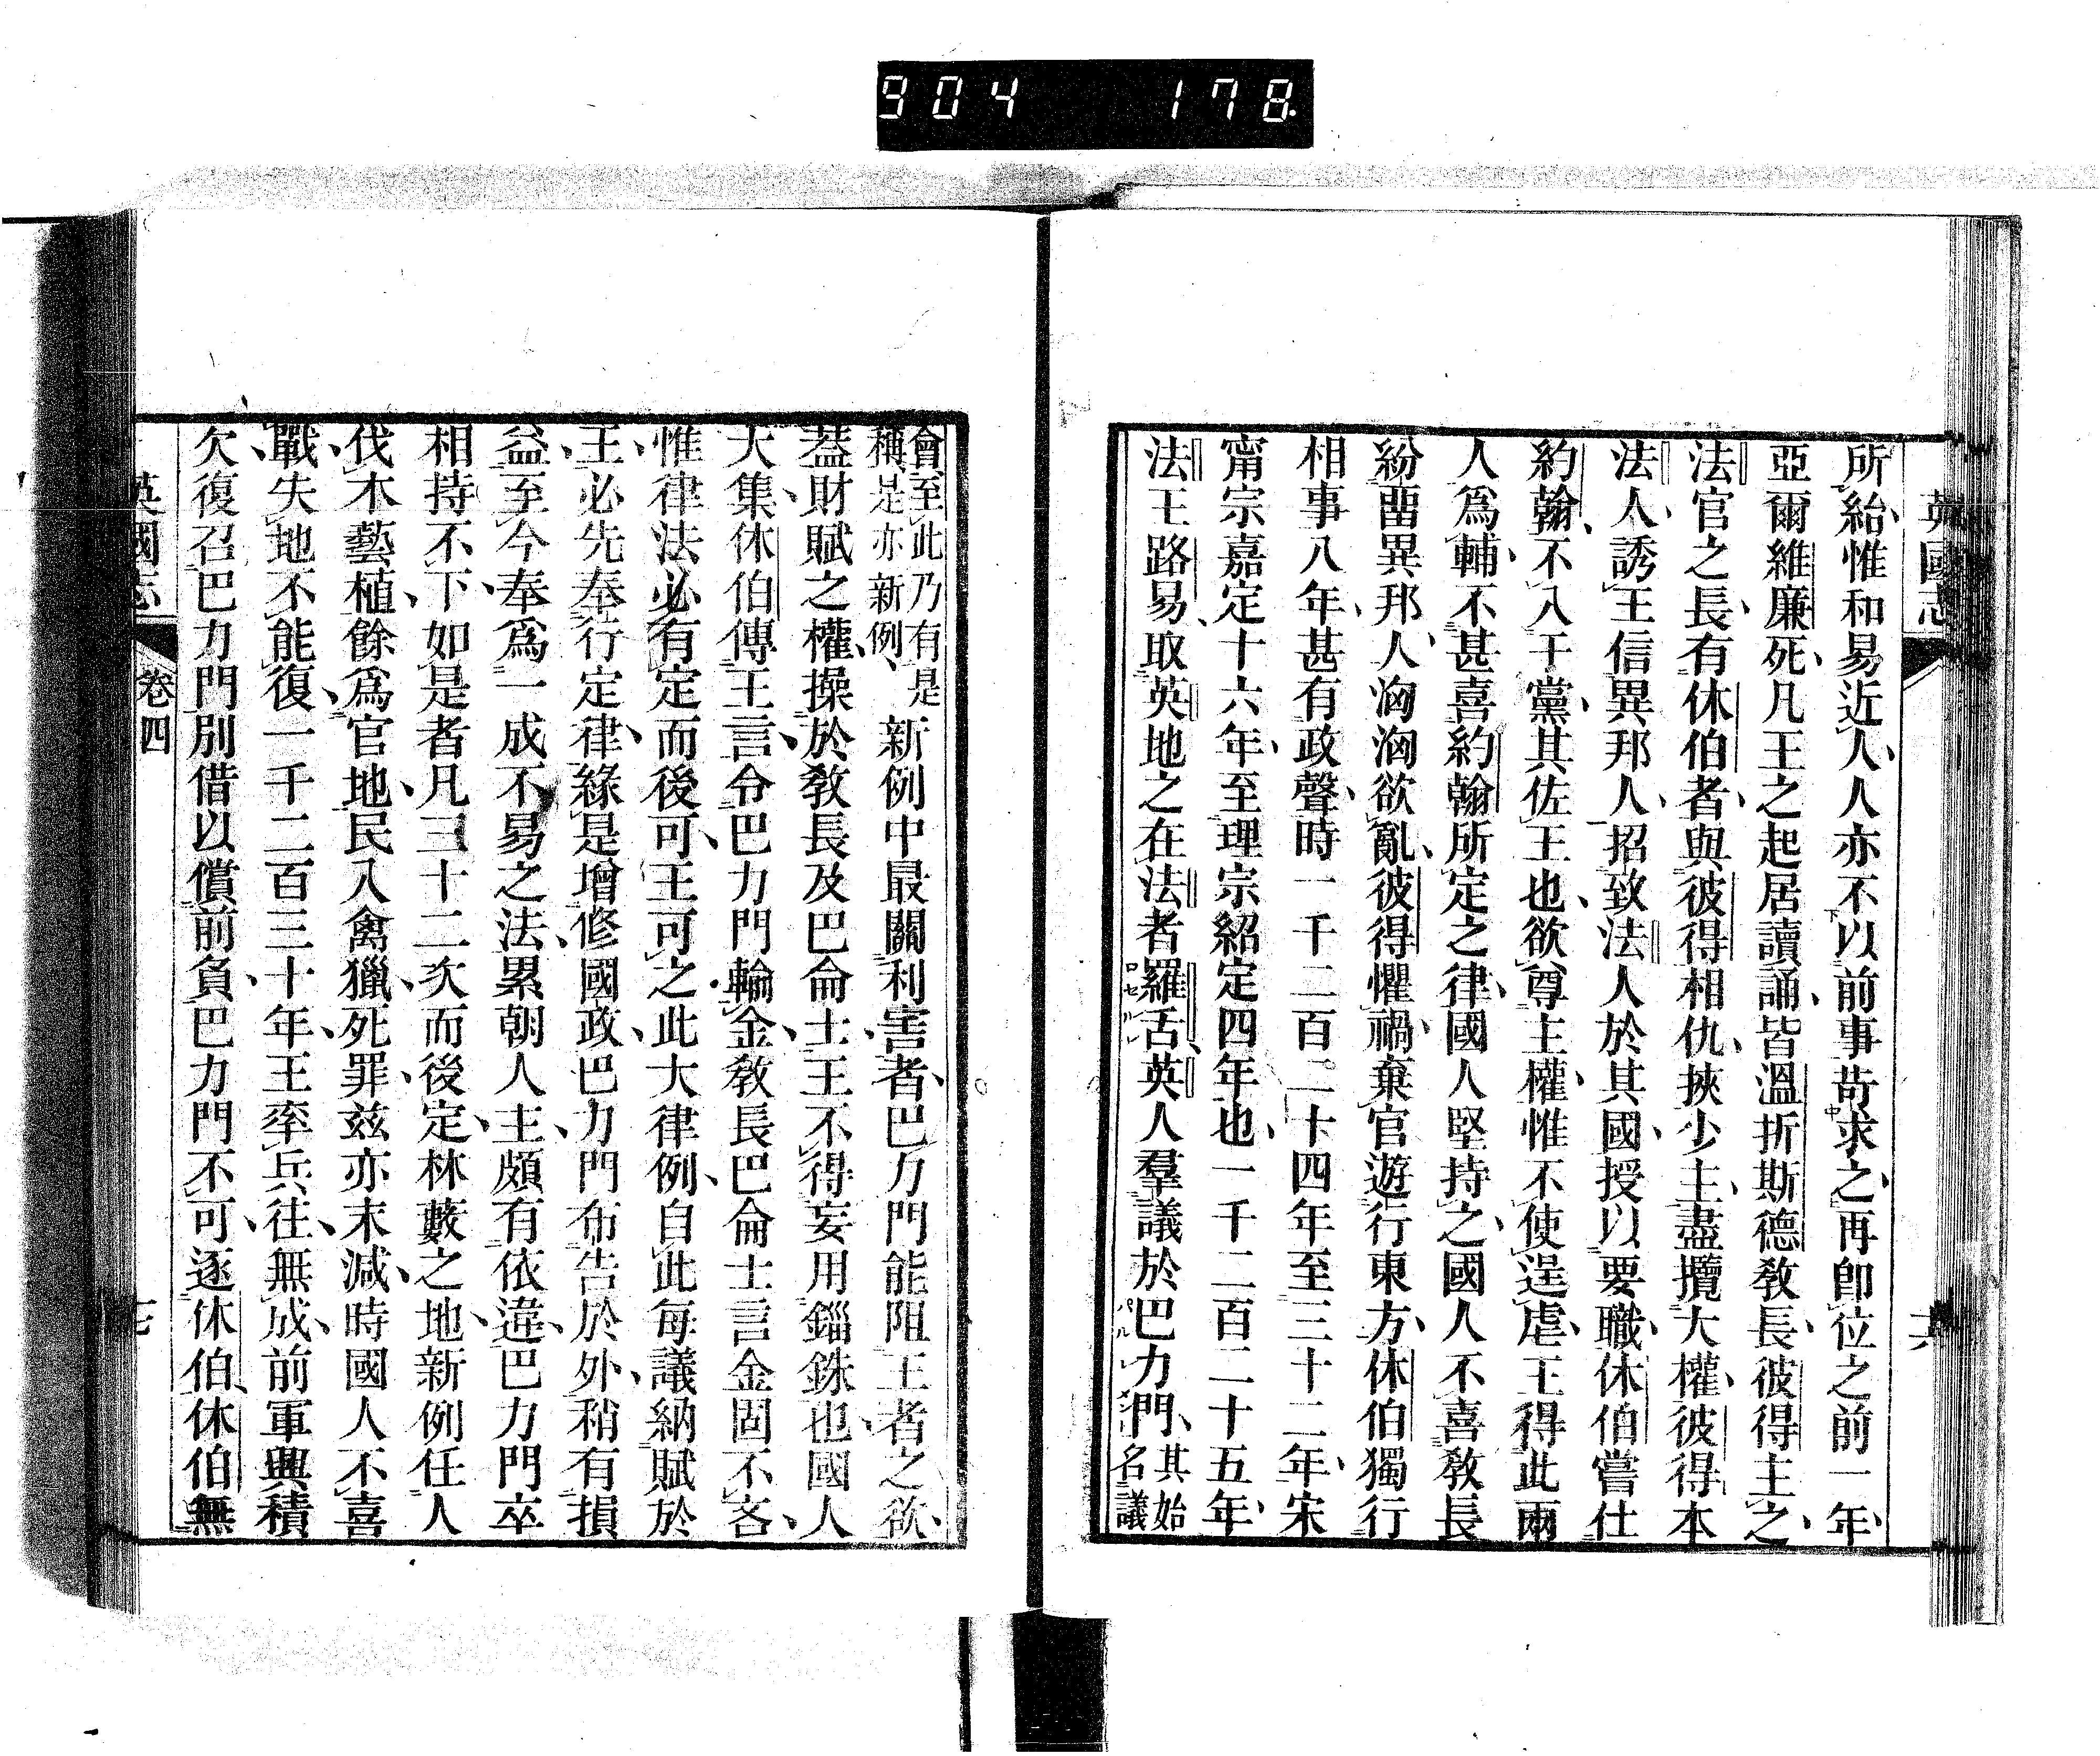 904 178
英國志
所紿惟和易近人人亦不以前事苛求之再卽位之前一年
亞爾維廉死凡王之起居讀誦皆溫折斯德敎長彼得主之
法官之長有休伯者與彼得相仇挾少主盡攬大權彼得本
法人誘王信異邦人招致法人於其國授以要職休伯嘗仕
約翰不入于黨其佐王也欲尊主權惟不使逞虐王得此兩
人爲輔不甚喜約翰所定之律國人堅持之國人不喜敎長
紛畱異邦人洶洶欲亂彼得懼禍棄官遊行東方休伯獨行
相事八年甚有政聲時一千二百二十四年至三十二年宋
甯宗嘉定十六年至理宗紹定四年也一千二百二十五年
法王路易取英地之在法者羅舌英人羣議於巴力門其始名議
會至此乃有是稱是亦新例新例中最關利害者巴力門能阻王者之欲
葢財賦之權操於敎長及巴侖士王不得妄用錙銖也國人
大集休伯傳王言令巴力門輸金敎長巴侖士言金固不吝
惟律法必有定而後可王可之此大律例自此每議納賦於
王必先奉行定律緣是增修國政巴力門布告於外稍有損
益至今奉爲一成不易之法累朝人主頗有依違巴力門卒
相持不下如是者凡三十二次而後定林藪之地新例任人
伐木藝植餘爲官地民入禽獵死罪茲亦末減時國人不喜
戰失地不能復一千二百三十年王率兵往無成前軍興積
欠復召巴力門別借以償前負巴力門不可逐休伯休伯無
英國志 卷四 七